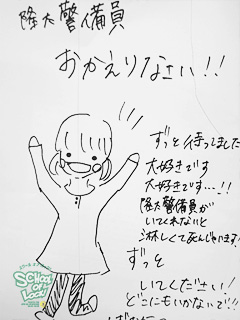 隆太警備員
おかえりなさい!!
ずっと待ってました
大好きです
大好きです…!!
隆太警備員が
いてくれないと
淋しくて死んじゃいます!
ずっと
いてください!
どこにもいかないで!!
SCHOOL OF LOCK!